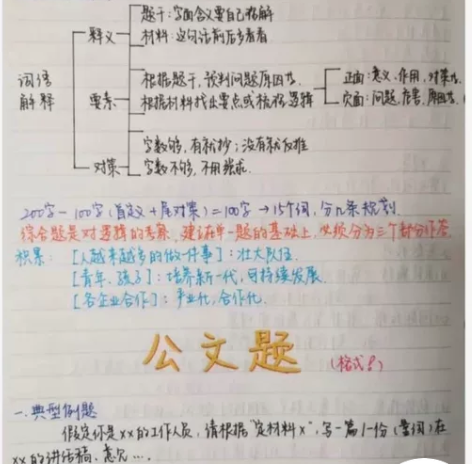 题干:字面含义要自己理解
释义
材料:这句话前后多看看
词语
解释
要素
根据题干,预判问题原因等
根据材料找出要点或梳理逻辑
正面:意义、作用、对策等
负面:问题、危害、原因等
对策
字数够,有就抄;没有就反推
字数不够,不用强求
200字-100字(首定义+尾对策)=100字→15个词,分几条规划
综合题是对逻辑的考察,建立在单一题的基础上,必须分为三个部分作答
积累: [人越来越多的做一件事]:壮大队伍
[青年、孩子]:培养新一代,可持续发展
[各企业合作]:产业化,合作化
公文题
(格式?)
一.典型例题
假定你是xx的工作人员,请根据"定材料x",写一篇/一份(警词)在
xx的讲话稿、意见…